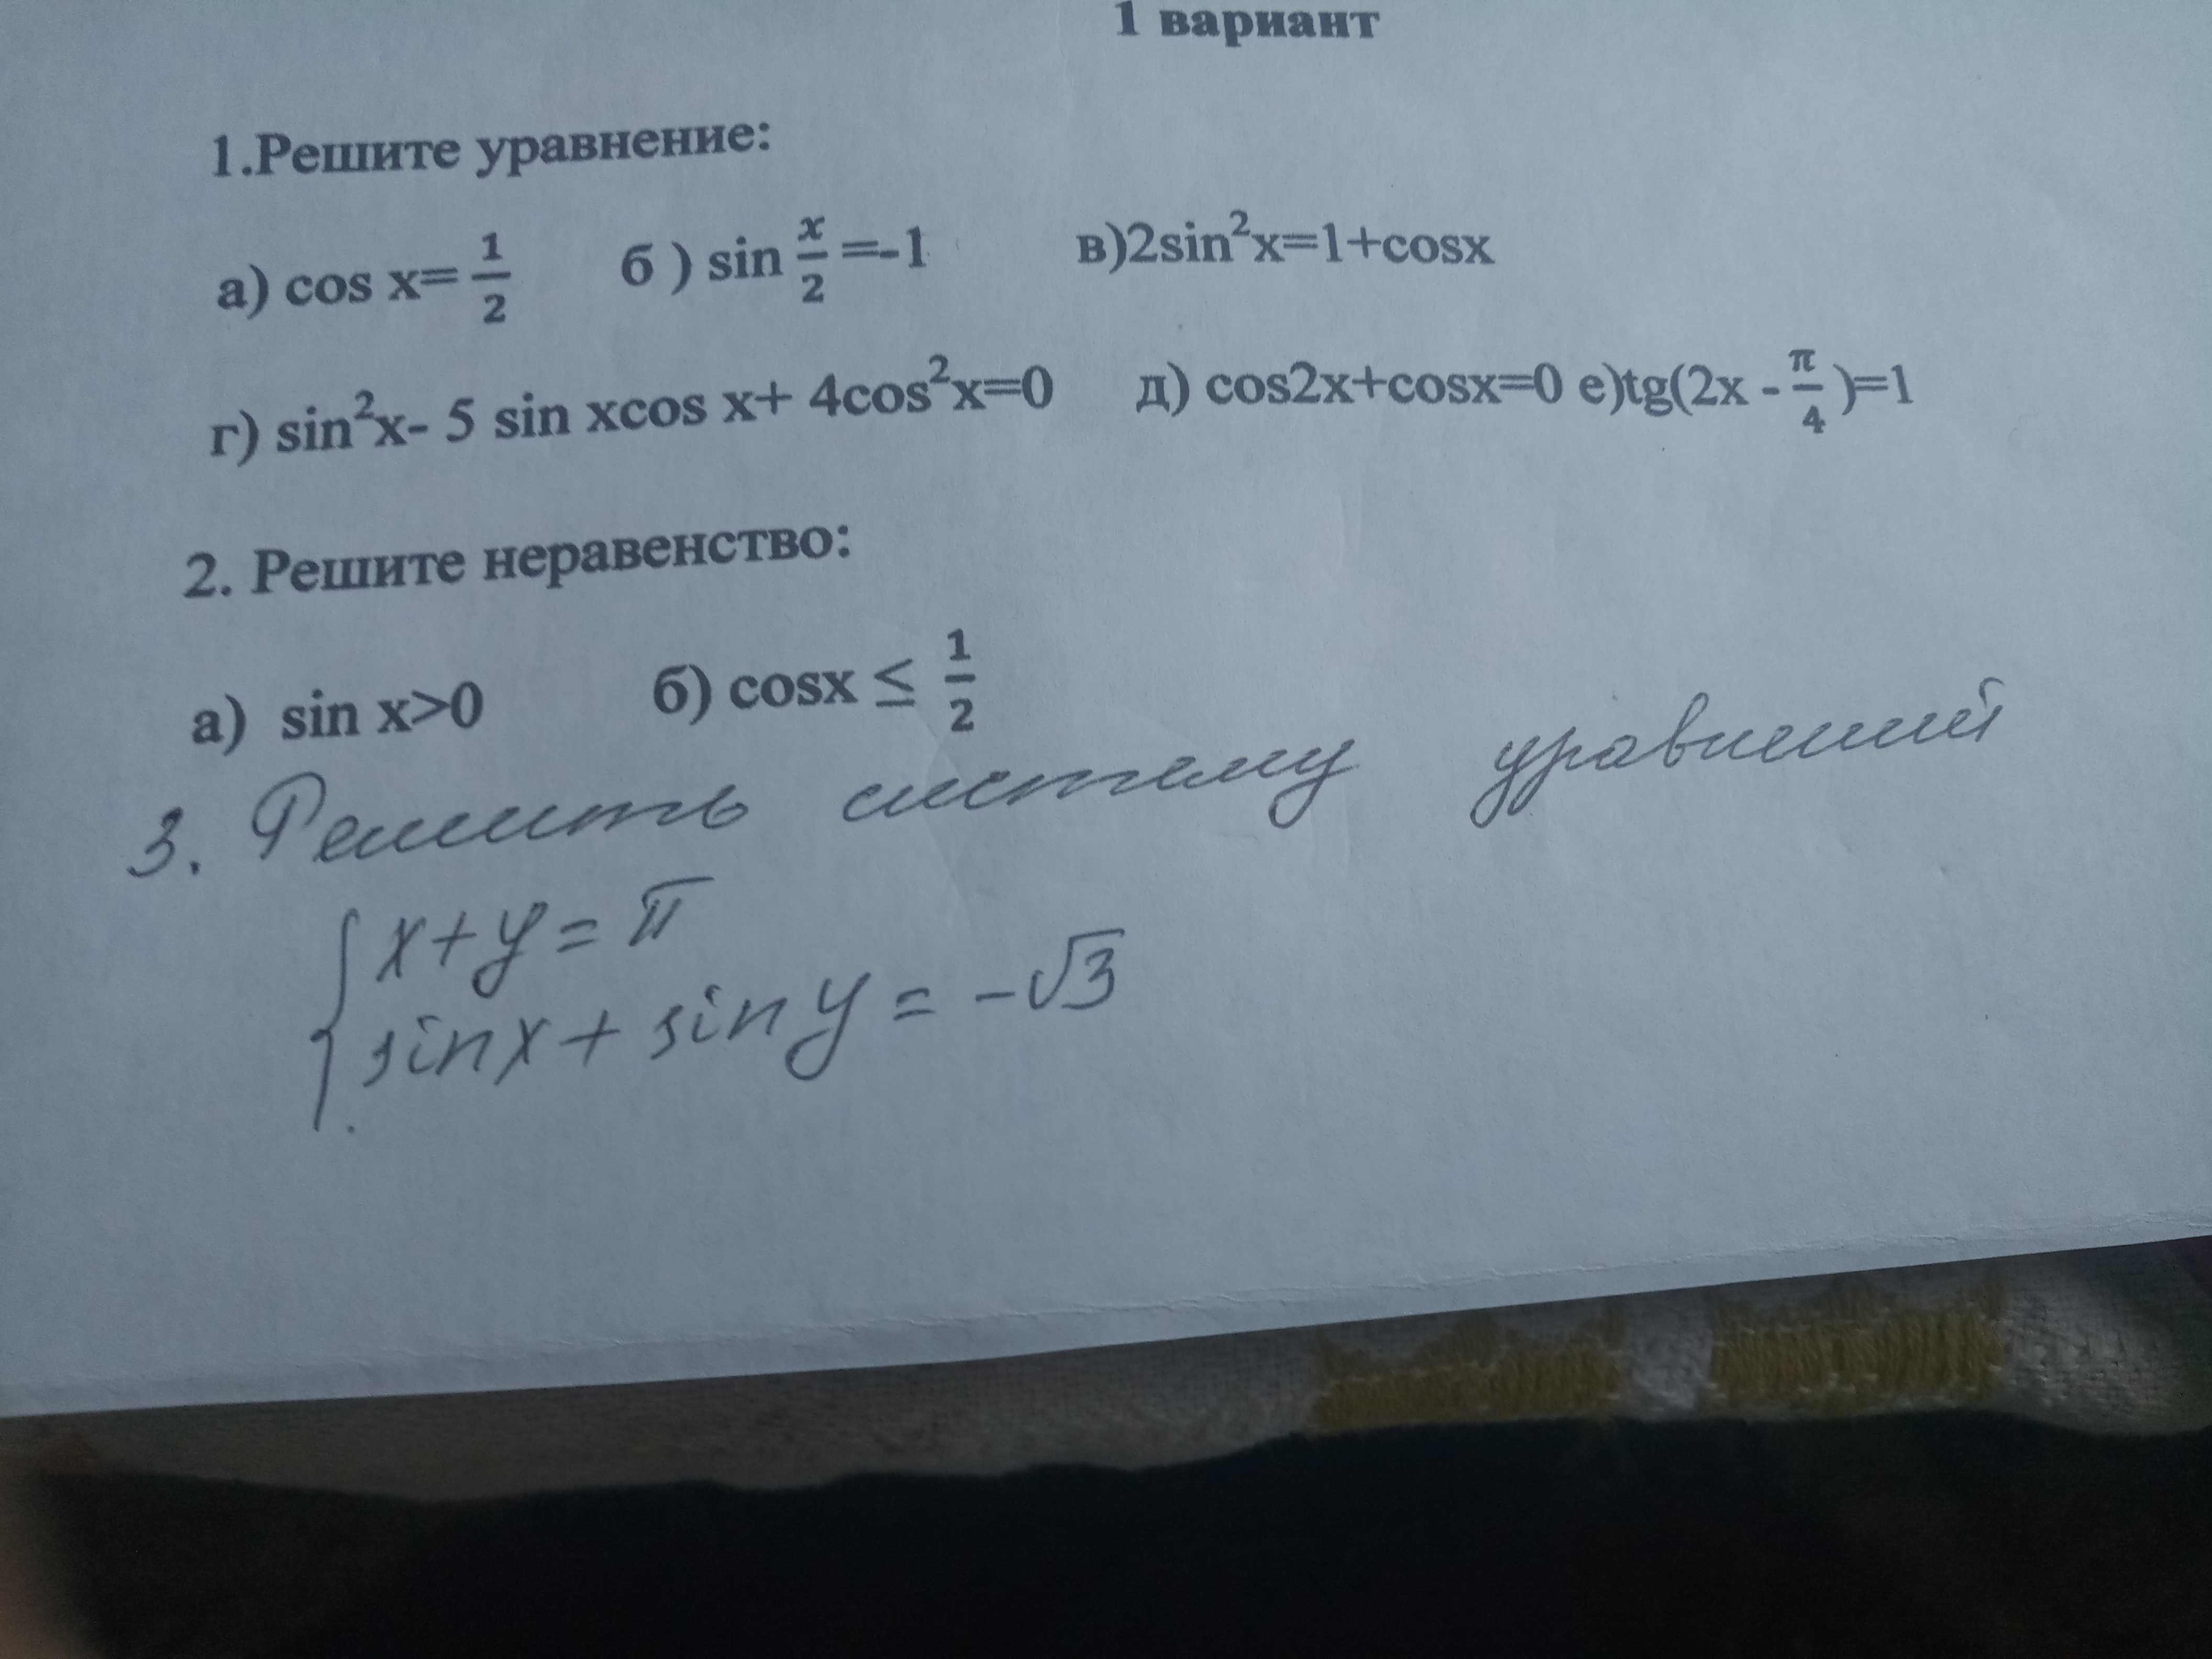 1 вариант
1.Решите уравнение:
а) cos x=1/2 б ) sin x/2=-1 в)2sin²x=1+cosx
г) sin²x- 5 sin xcos x+ 4cos²x=0 д) cos2x+cosx=0 е)tg(2x -π/4)=1
2. Решите неравенство:
а) sin x>0 б) cosx ≤ 1/2
3. Решить систему уравнений
{x+y=π
sinx+siny=-√3